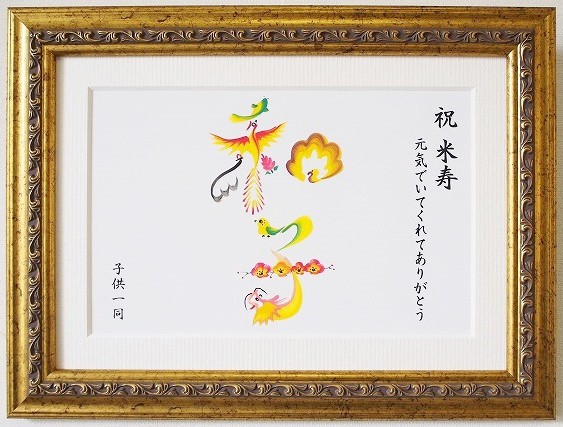 祝 米寿
元気でいてくれてありがとう
和子
子供一同